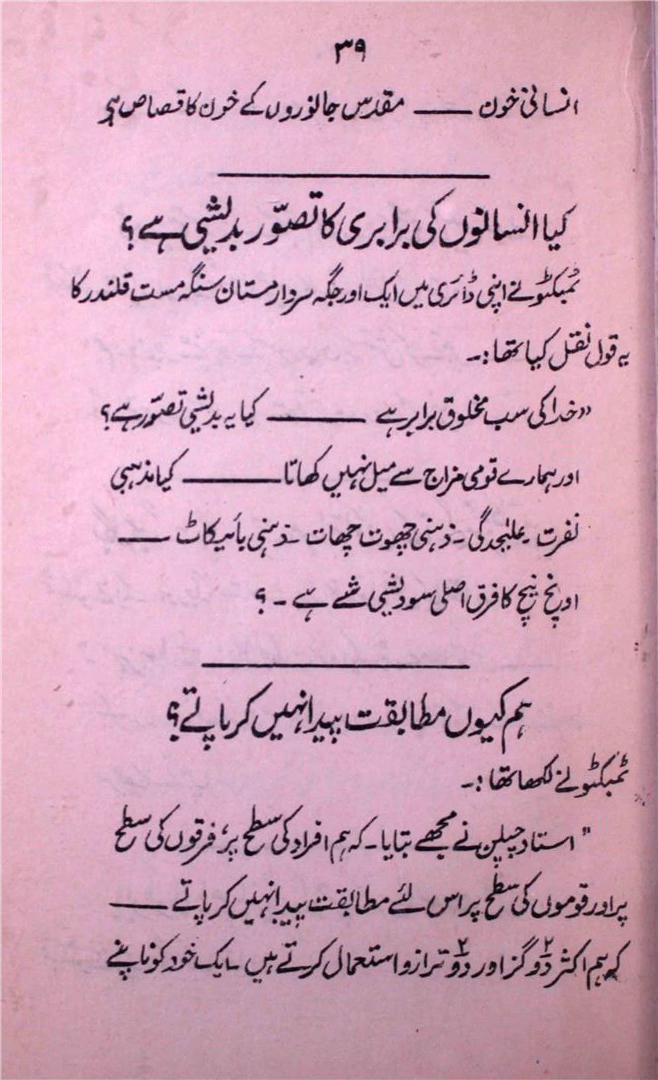 ۳۹
انسانی خون ـــــــ مقدس جانوروں کے خون کا قصاص ہے
کیا انسانوں کی برابری کا تصوّر بدیشی ہے؟
ٹمبکٹو نے اپنی ڈائری میں ایک اور جگہ سردار مستان سنگھ مست قلندر کا
یہ قول نقل کیا تھا :۔
"خدا کی سب مخلوق برابر ہے ـــــــ کیا یہ بدیشی تصوّر ہے؟
اور ہمارے قومی مزاج سے میل نہیں کھاتا ـــــــ کیا مذہبی
نفرت ۔ علیٰحدگی ۔ ذہنی چھوت چھات ۔ ذہنی بائیکاٹ ـــــــ
اونچ نیچ کا فرق اصلی سودیشی شے ہے ۔ ؟
ہم کیوں مطابقت پیدا نہیں کر پاتے؟
ٹمبکٹو نے لکھا تھا :۔
"استاد چپلن نے مجھے بتایا ۔ کہ ہم افراد کی سطح پر، فرقوں کی سطح
پر اور قوموں کی سطح پر اس لئے مطابقت پیدا نہیں کر پاتے ـــــــ
کہ ہم اکثر دو ۲ گز اور دو ۲ ترازو استعمال کرتے ہیں ۔ ایک خود کو ناپنے